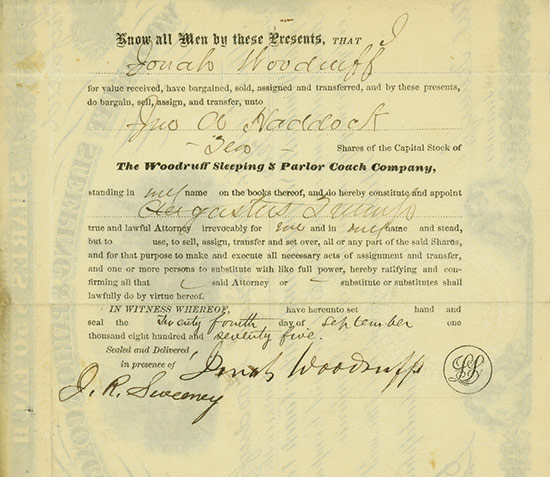 Know all Men by these Presents, THAT I
Jonah Woodruff
for value received, have bargained, sold, assigned and transferred, and by these presents,
do bargain, sell, assign, and transfer, unto
Jno A Haddock
- Ten - Shares of the Capital Stock of
The Woodruff Sleeping & Parlor Coach Company,
standing in my name on the books thereof, and do hereby constitute and appoint
Augustus Trump
true and lawful Attorney irrevocably for me and in my name and stead,
but to use, to sell, assign, transfer and set over, all or any part of the said Shares,
and for that purpose to make and execute all necessary acts of assignment and transfer,
and one or more persons to substitute with like full power, hereby ratifying and con-
firming all that said Attorney or substitute or substitutes shall
lawfully do by virtue hereof.
IN WITNESS WHEREOF, have hereunto set hand and
seal the Twenty fourth day of September one
thousand eight hundred and seventy five.
Sealed and Delivered
in presence of Jonah Woodruff LS
J. R. Sweeney